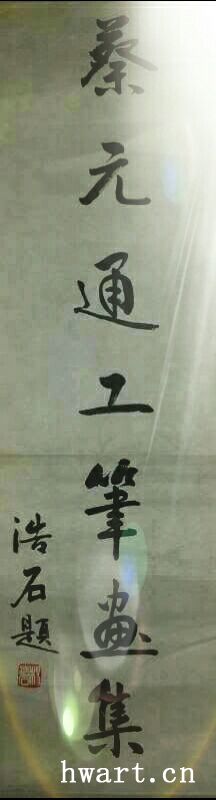 蔡元通工筆畫集
浩石題
hwart.cn